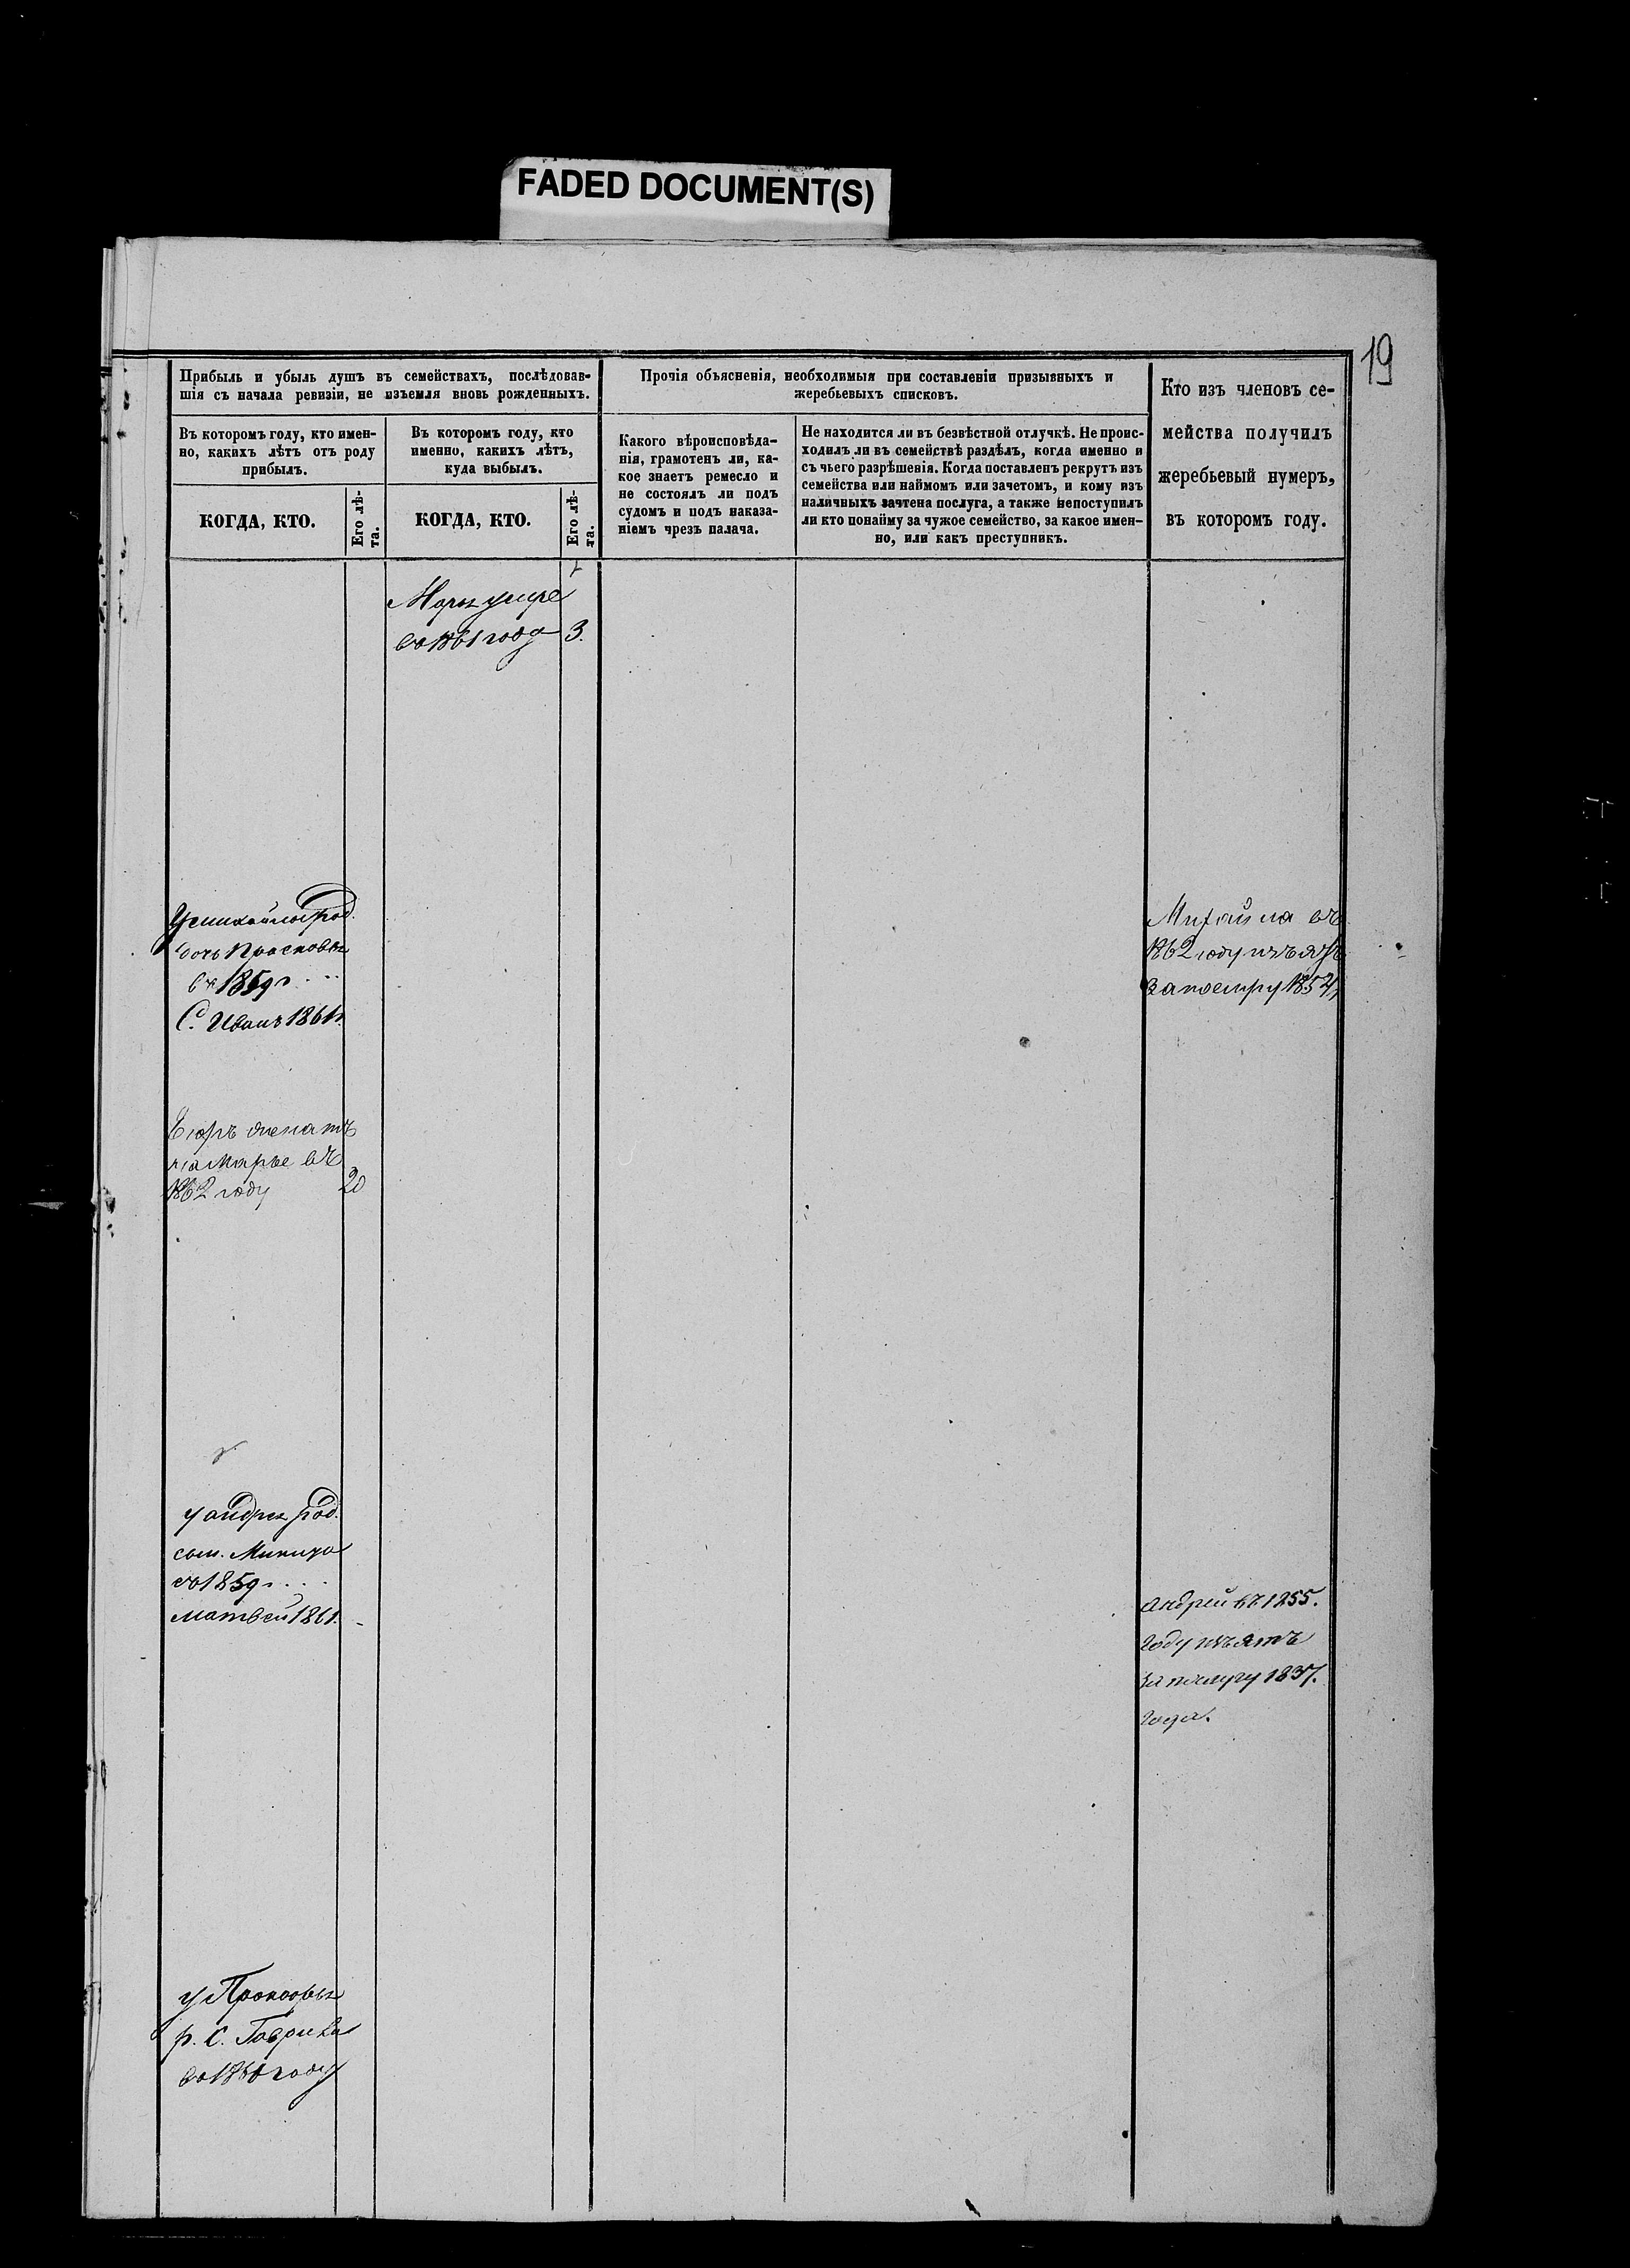 FADED DOCUMENT(S)
19
Прибыль и убыль душъ въ семействахъ, послѣдовав-
шія съ начала ревизіи, не изъемля вновь рожденныхъ.
Въ которомъ году, кто имен-
но, какихъ лѣтъ отъ роду
прибылъ.
КОГДА, КТО.
Его лѣ-
та.
Въ которомъ году, кто
именно, какихъ лѣтъ,
куда выбылъ.
КОГДА, КТО.
Его лѣ-
та.
Прочія объясненія, необходимыя при составленіи призывныхъ и
жеребьевыхъ списковъ.
Какого вѣроисповѣда-
нія, грамотенъ ли, ка-
кое знаетъ ремесло и
не состоялъ ли подъ
судомъ и подъ наказа-
ніемъ чрезъ палача.
Не находится ли въ безвѣстной отлучкѣ. Не проис-
ходилъ ли въ семействѣ раздѣлъ, когда именно и
съ чьего разрѣшенія. Когда поставленъ рекрутъ изъ
семейства или наймомъ или зачетомъ, и кому изъ
наличныхъ зачтена послуга, а также непоступилъ
ли кто понайму за чужое семейство, за какое имен-
но, или какъ преступникъ.
Кто изъ членовъ се-
мейства получилъ
жеребьевый нумеръ,
въ которомъ году.
умре
въ 1861 года 3.
У михайлы род.
дочь Прасковья
въ 1859 г
С. Иванъ 1861 г.
Михайла въ
1862 году изъятъ
За 185
Егоръ женатъ
на Марье въ
1862 году 20
у андрея род.
сын. Микита
въ 1859 г
матвей 1861.
андрей въ 1255.
году изъятъ
за послугу 1837.
года.
у Прокофья
р. С. Гаврила
въ году